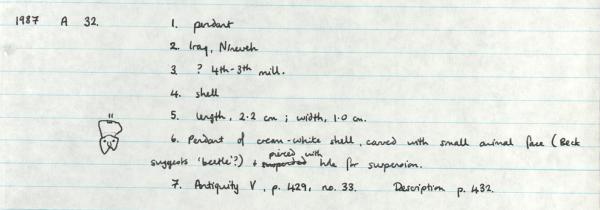 1987 A 32. 1. pendant
2. Iraq, Nineveh
3. ? 4th-3rd mill.
4. shell
5. length, 2.2 cm ; width, 1.0 cm.
6. Pendant of cream-white shell, carved with small animal face (Beck
suggests 'beetle'?) & suspended pierced with hole for suspension.
7. Antiquity V, p. 429, no. 33. Description p. 432.